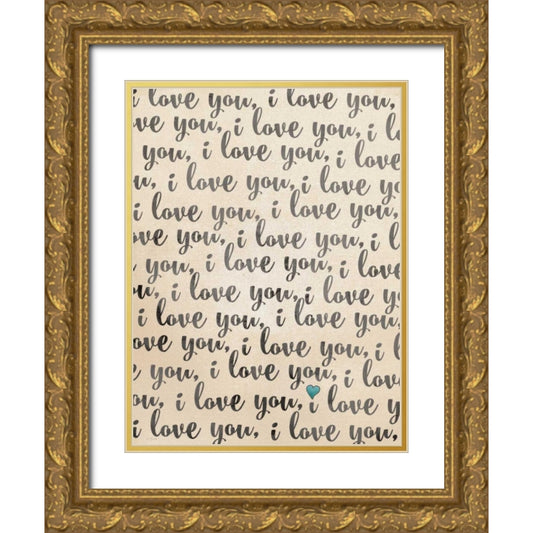 i love you, i love you,
ve you, i love you, i lo
you, i love you, i love
u, i love you, i love yo
i love you, i love you,
ove you, i love you, i l
you, i love you, i love
u, i love you, i love y
i love you, i love you,
ove you, i love you, i l
you, i love you, i love
ou, i love you, i love y
i love you, i love you,